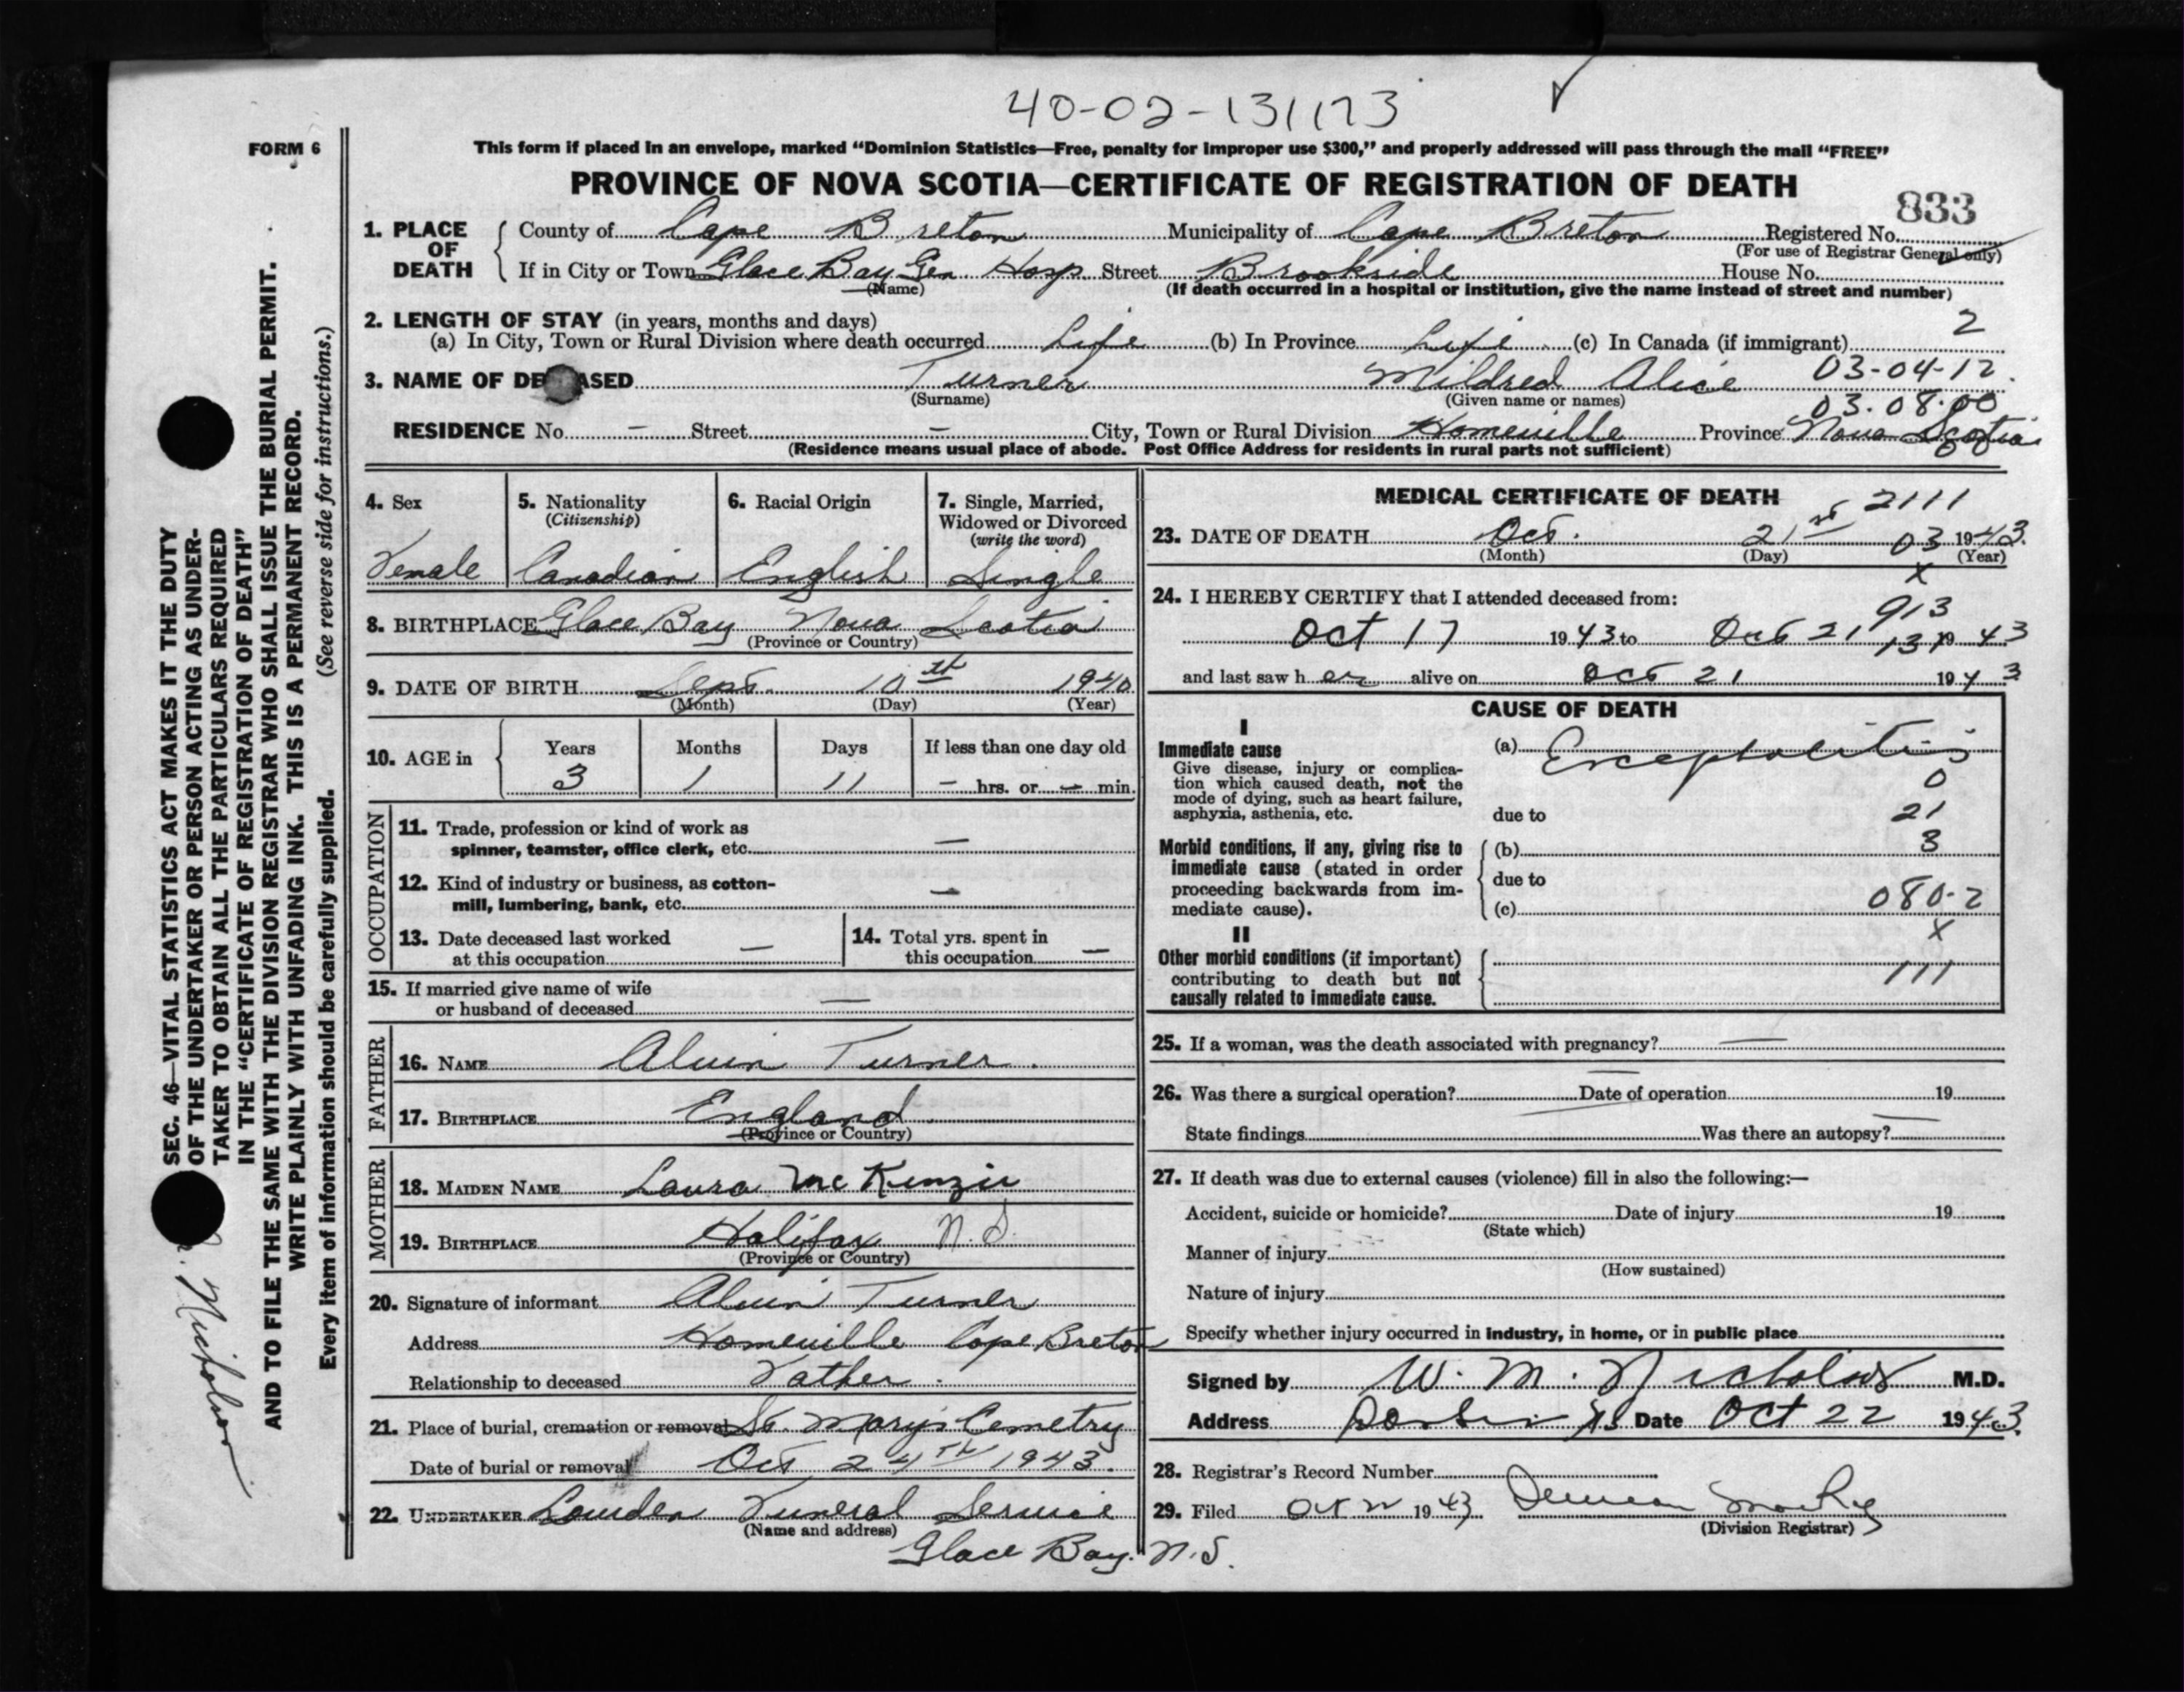 40-02-131173
FORM 6
This form if placed in an envelope, marked “Dominion Statistics—Free, penalty for improper use $300,” and properly addressed will pass through the mail “FREE”
PROVINCE OF NOVA SCOTIA—CERTIFICATE OF REGISTRATION OF DEATH
833
1. PLACE OF DEATH
County of Cape Breton Municipality of Cape Breton Registered No.
(For use of Registrar General only)
If in City or Town Glace Bay Gen Hosp Street Brookside House No.
(Name) (If death occurred in a hospital or institution, give the name instead of street and number)
2. LENGTH OF STAY (in years, months and days)
2
(a) In City, Town or Rural Division where death occurred Life (b) In Province Life (c) In Canada (if immigrant)
3. NAME OF DECEASED Turner Mildred Alice 03-04-12
(Surname) (Given name or names) 03.08.00
RESIDENCE No. — Street — City, Town or Rural Division Homeville Province Nova Scotia
(Residence means usual place of abode. Post Office Address for residents in rural parts not sufficient)
4. Sex
Female
5. Nationality
(Citizenship)
Canadian
6. Racial Origin
English
7. Single, Married,
Widowed or Divorced
(write the word)
Single
8. BIRTHPLACE Glace Bay Nova Scotia
(Province or Country)
9. DATE OF BIRTH Sept. 10th 1940
(Month) (Day) (Year)
10. AGE in
Years Months Days If less than one day old
3 1 11 — hrs. or — min.
OCCUPATION
11. Trade, profession or kind of work as
spinner, teamster, office clerk, etc. —
12. Kind of industry or business, as cotton-
mill, lumbering, bank, etc. —
13. Date deceased last worked
at this occupation —
14. Total yrs. spent in
this occupation —
15. If married give name of wife
or husband of deceased —
FATHER
16. NAME Alvin Turner.
17. BIRTHPLACE England
(Province or Country)
MOTHER
18. MAIDEN NAME Laura McKenzie
19. BIRTHPLACE Halifax N.S.
(Province or Country)
20. Signature of informant Alvin Turner
Address Homeville Cape Breton
Relationship to deceased Father.
21. Place of burial, cremation or removal St. Mary's Cemetry
Date of burial or removal Oct 24TH 1943.
22. UNDERTAKER Lowden Funeral Service
(Name and address)
Glace Bay. N.S.
MEDICAL CERTIFICATE OF DEATH
2111
23. DATE OF DEATH Oct. 21st 03 1943.
(Month) (Day) (Year)
x
24. I HEREBY CERTIFY that I attended deceased from:
913
Oct 17 1943 to Oct 21 131 1943
and last saw her alive on Oct 21 1943
CAUSE OF DEATH
I
Immediate cause
Give disease, injury or complica-
tion which caused death, not the
mode of dying, such as heart failure,
asphyxia, asthenia, etc.
(a) Encephalitis
0
due to 21
Morbid conditions, if any, giving rise to
immediate cause (stated in order
proceeding backwards from im-
mediate cause).
(b) 3
due to
(c) 080-2
x
II
Other morbid conditions (if important)
contributing to death but not
causally related to immediate cause.
111
25. If a woman, was the death associated with pregnancy? —
26. Was there a surgical operation? — Date of operation 19
State findings Was there an autopsy? —
27. If death was due to external causes (violence) fill in also the following:—
Accident, suicide or homicide? Date of injury 19
(State which)
Manner of injury
(How sustained)
Nature of injury
Specify whether injury occurred in industry, in home, or in public place
Signed by W. M. Nicholson M.D.
Address Date Oct 22 1943.
28. Registrar's Record Number
29. Filed Oct 22 1943
(Division Registrar)
SEC. 46—VITAL STATISTICS ACT MAKES IT THE DUTY
OF THE UNDERTAKER OR PERSON ACTING AS UNDER-
TAKER TO OBTAIN ALL THE PARTICULARS REQUIRED
IN THE “CERTIFICATE OF REGISTRATION OF DEATH”
AND TO FILE THE SAME WITH THE DIVISION REGISTRAR WHO SHALL ISSUE THE BURIAL PERMIT.
WRITE PLAINLY WITH UNFADING INK. THIS IS A PERMANENT RECORD.
Every item of information should be carefully supplied. (See reverse side for instructions.)
Nicholson